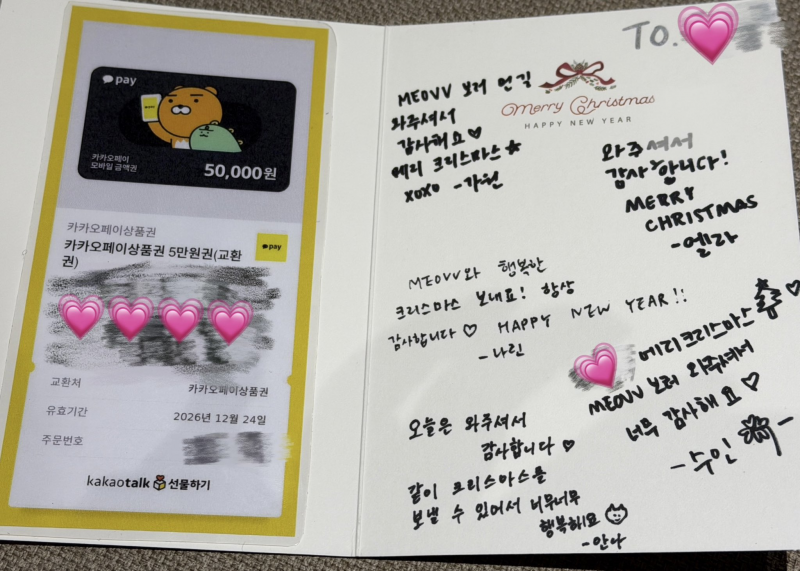 pay
카카오페이
모바일 금액권
50,000원
카카오페이상품권
카카오페이상품권 5만원권(교환
권)
pay
교환처 카카오페이상품권
유효기간 2026년 12월 24일
주문번호
kakaotalk 선물하기
TO.
Merry Christmas
HAPPY NEW YEAR
MEOVV 보러 먼길
와주셔서
감사해요♡
메리 크리스마스★
xoxo -가원
와주셔서
감사합니다!
MERRY
CHRISTMAS
-엘라
MEOVV와 행복한
크리스마스 보내요! 항상
감사합니다♡ HAPPY NEW YEAR!!
-나린
메리크리스마스♡
MEOVV 보러 와주셔서
너무 감사해요♡
-수인-
오늘은 와주셔서
감사합니다♡
같이 크리스마스를
보낼 수 있어서 너무너무
행복해요
-안나